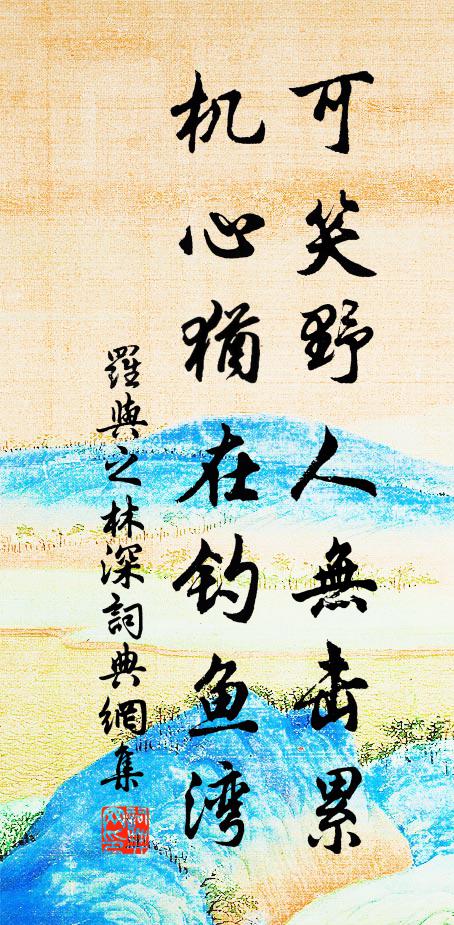 可笑野人無世累
机心猶在钓鱼湾
羅與之林深詞典網集